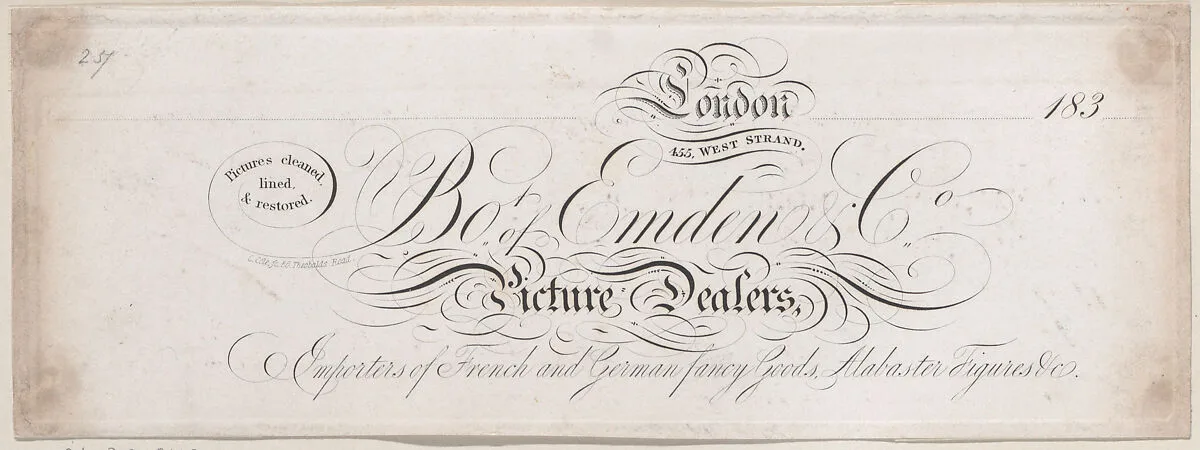 257
London
183
455, WEST STRAND.
Pictures cleaned,
lined,
& restored.
Bot. of Emden & Co.
Picture Dealers,
Importers of French and German fancy Goods, Alabaster Figures &c.